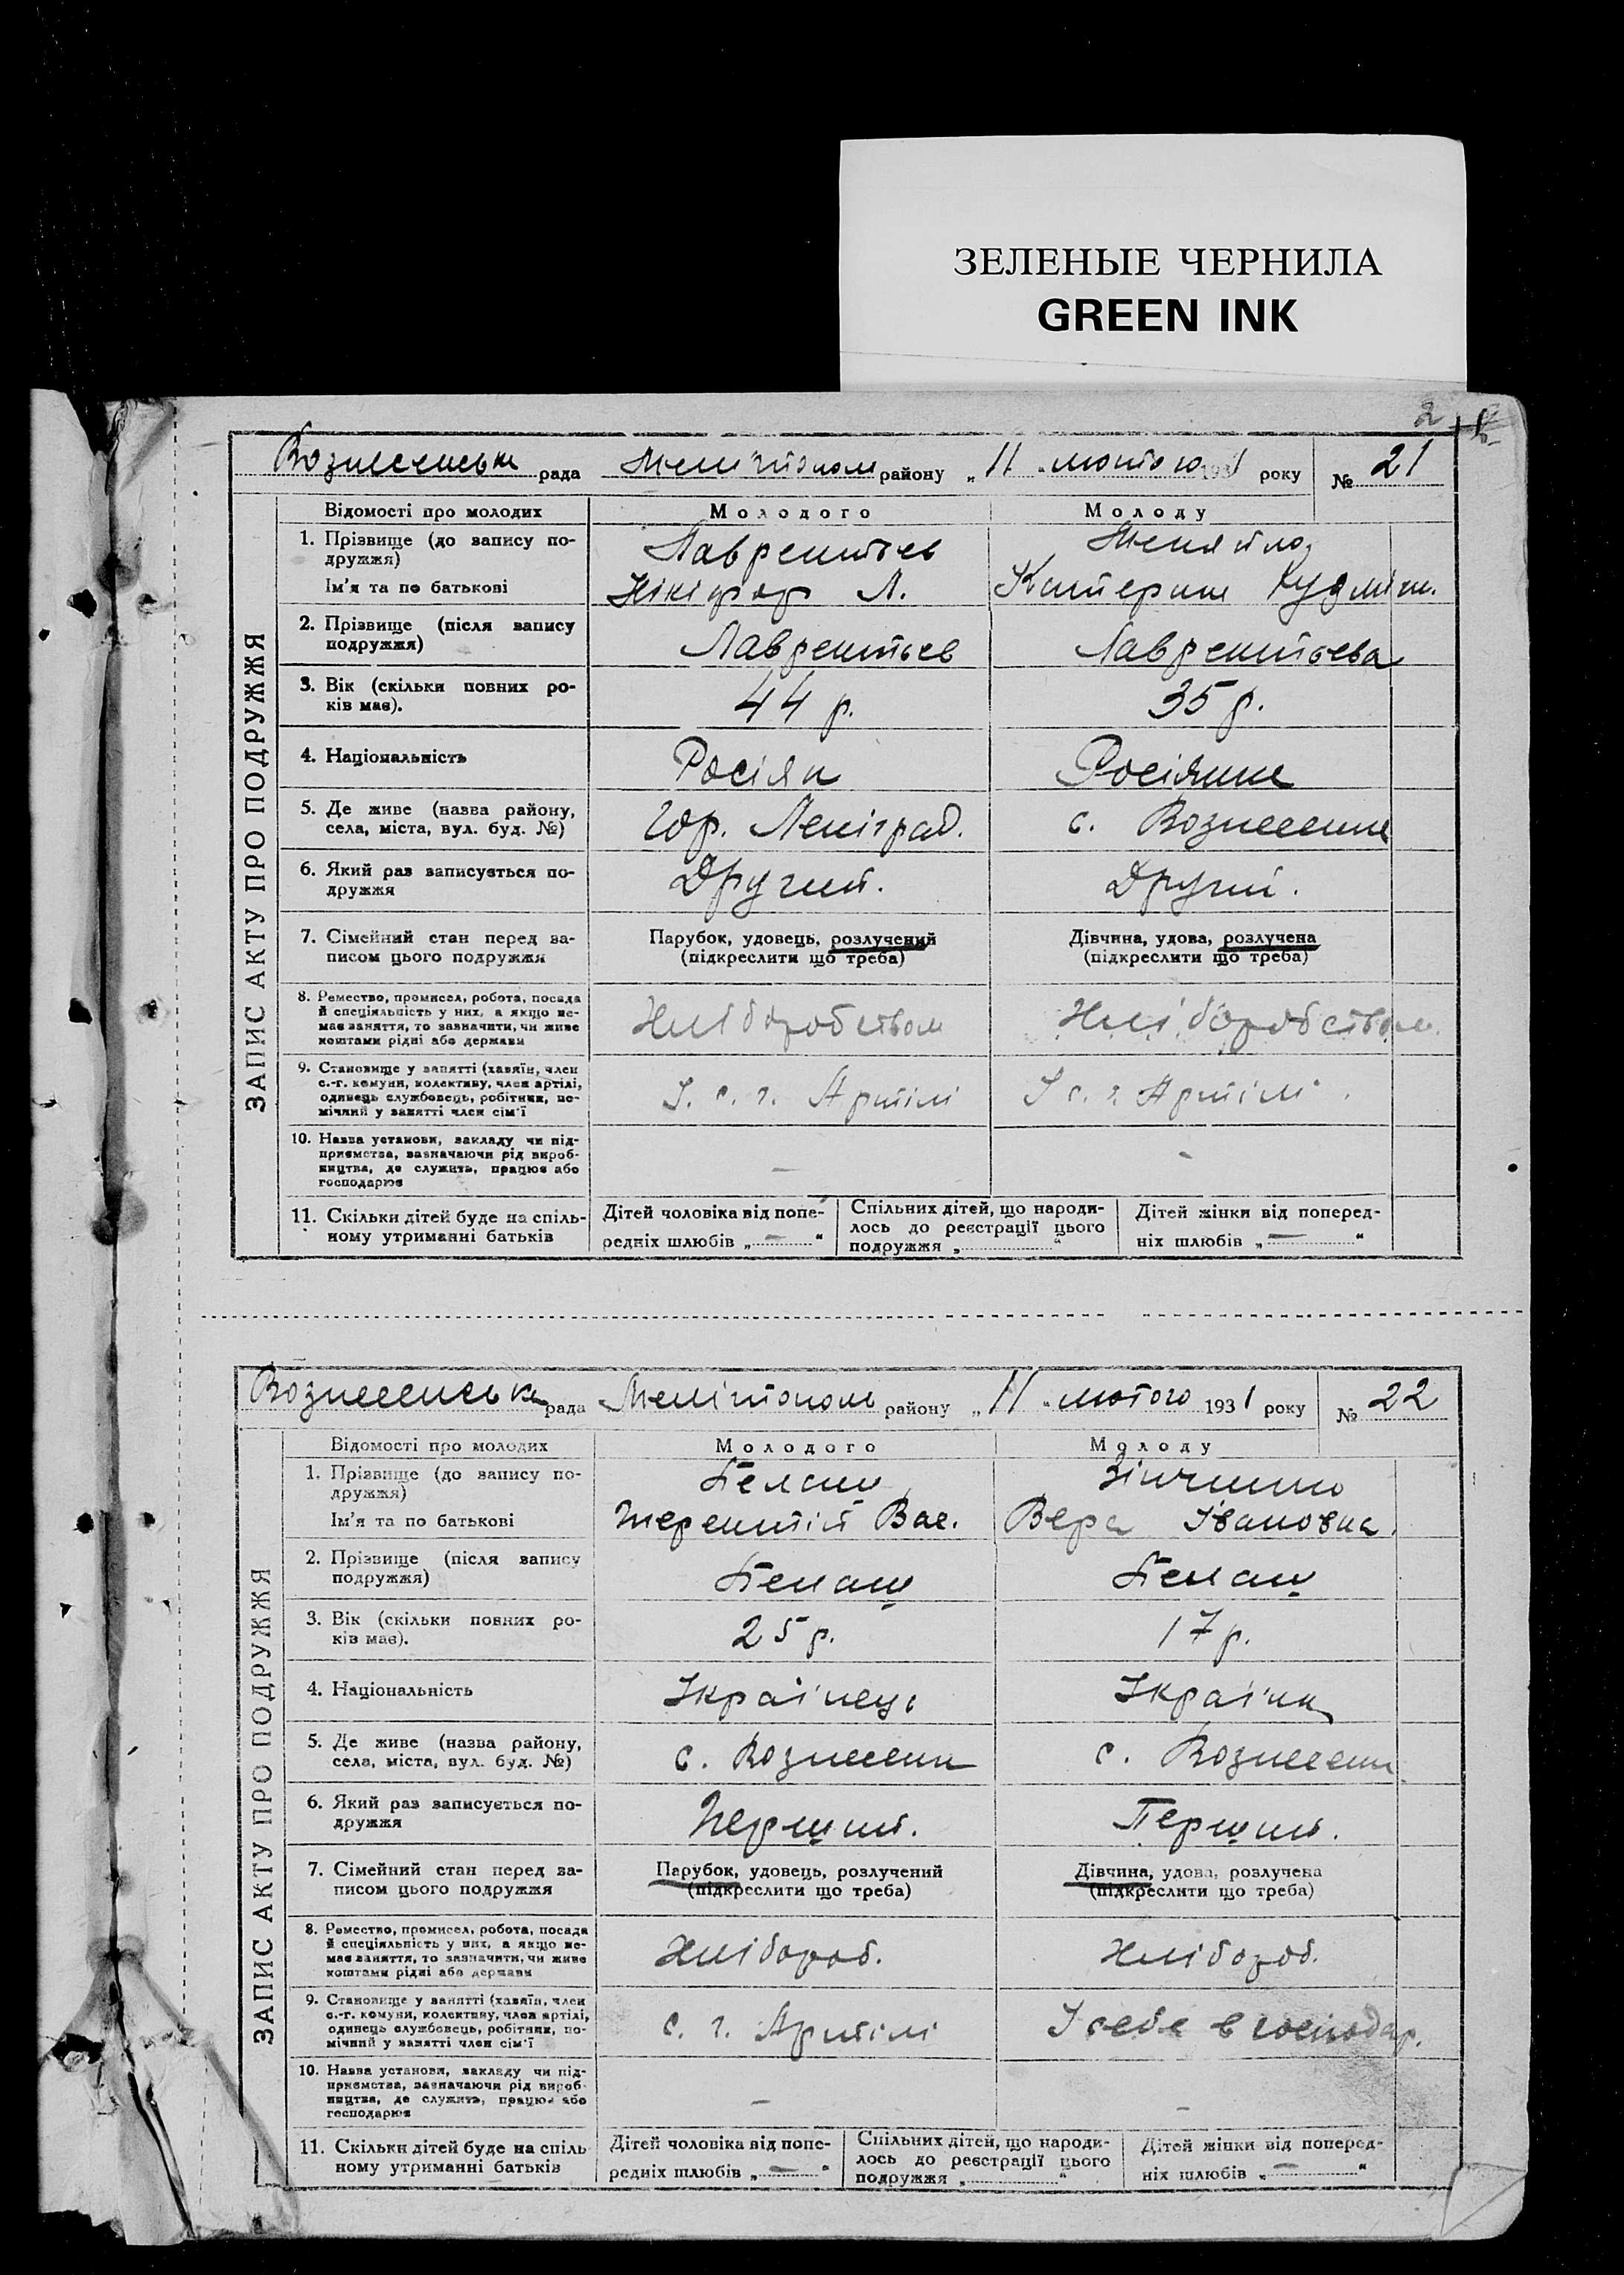 ЗЕЛЕНЫЕ ЧЕРНИЛА
GREEN INK
2
Вознесенська рада Мелітополь району „11 “ лютого 1931 року № 21
ЗАПИС АКТУ ПРО ПОДРУЖЖЯ
Відомості про молодих Молодого Молоду
1. Прізвище (до запису по-
дружжя) Лаврентьев
Ім’я та по батькові Нікіфор Л. Катерина
2. Прізвище (після запису
подружжя) Лаврентьев Лаврентьева
3. Вік (скільки повних ро-
ків має). 44 р. 35 р.
4. Національність Росіян Росіянка
5. Де живе (назва району,
села, міста, вул. буд. №) гор. Леніград. с. Вознесенка
6. Який раз записується по-
дружжя Другий. Другий.
7. Сімейний стан перед за-
писом цього подружжя
Парубок, удовець, розлучений
(підкреслити що треба)
Дівчина, удова, розлучена
(підкреслити що треба)
8. Ремество, промисел, робота, посада
й спеціяльність у них, а якщо не-
має заняття, то зазначити, чи живе
коштами рідні або держави
Хліборобством Хліборобством
9. Становище у занятті (хазяїн, член
с.-г. комуни, колективу, член артілі,
одинець службовець, робітник, по-
мічний у занятті член сім’ї
У с. г. Артілі У с. г. Артілі
10. Назва установи, закладу чи під-
приємства, зазначаючи рід вироб-
ництва, де служить, працює або
господарює
– –
11. Скільки дітей буде на спіль-
ному утриманні батьків
Дітей чоловіка від попе-
редніх шлюбів „ — “
Спільних дітей, що народи-
лось до реєстрації цього
подружжя „ “
Дітей жінки від поперед-
ніх шлюбів „ — “
Вознесенська рада Мелітополь району „11 “ лютого 1931 року № 22
ЗАПИС АКТУ ПРО ПОДРУЖЖЯ
Відомості про молодих Молодого Молоду
1. Прізвище (до запису по-
дружжя) Белаш Зінченко
Ім’я та по батькові Терентій Вас. Вера Івановна
2. Прізвище (після запису
подружжя) Белаш Белаш
3. Вік (скільки повних ро-
ків має). 25 р. 17 р.
4. Національність Українець Українка
5. Де живе (назва району,
села, міста, вул. буд. №) с. Вознесенка с. Вознесенка
6. Який раз записується по-
дружжя Перший. Перший.
7. Сімейний стан перед за-
писом цього подружжя
Парубок, удовець, розлучений
(підкреслити що треба)
Дівчина, удова, розлучена
(підкреслити що треба)
8. Ремество, промисел, робота, посада
й спеціяльність у них, а якщо не-
має заняття, то зазначити, чи живе
коштами рідні або держави
Хлібороб. Хлібороб.
9. Становище у занятті (хазяїн, член
с.-г. комуни, колективу, член артілі,
одинець службовець, робітник, по-
мічний у занятті член сім’ї
с. г. Артілі У себе в господар.
10. Назва установи, закладу чи під-
приємства, зазначаючи рід вироб-
ництва, де служить, працює або
господарює
– –
11. Скільки дітей буде на спіль
ному утриманні батьків
Дітей чоловіка від попе-
редніх шлюбів „ — “
Спільних дітей, що народи-
лось до реєстрації цього
подружжя „ “
Дітей жінки від поперед-
ніх шлюбів „ — “